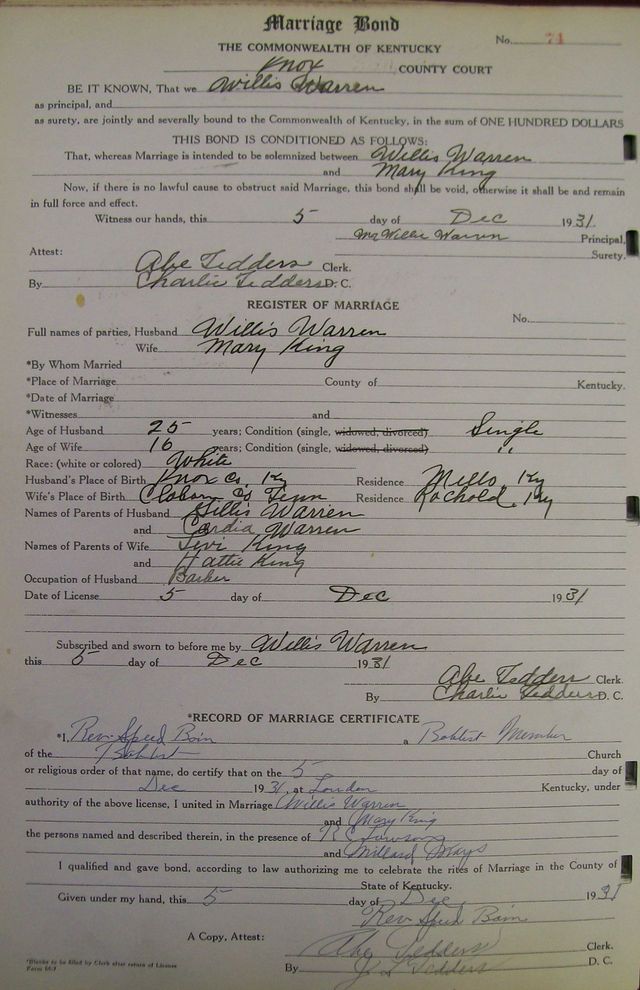 Marriage Bond
No. 74
THE COMMONWEALTH OF KENTUCKY
Knox COUNTY COURT
BE IT KNOWN, That we Willis Warren
as principal, and
as surety, are jointly and severally bound to the Commonwealth of Kentucky, in the sum of ONE HUNDRED DOLLARS
THIS BOND IS CONDITIONED AS FOLLOWS:
That, whereas Marriage is intended to be solemnized between Willis Warren
and Mary King
Now, if there is no lawful cause to obstruct said Marriage, this bond shall be void, otherwise it shall be and remain
in full force and effect.
Witness our hands, this 5 day of Dec 1931
Mr Willie Warren Principal,
Surety.
Attest:
Abe Tedders Clerk.
By Charlie Tedders D. C.
REGISTER OF MARRIAGE
No.
Full names of parties, Husband Willis Warren
Wife Mary King
*By Whom Married
*Place of Marriage County of Kentucky.
*Date of Marriage
*Witnesses and
Age of Husband 25 years; Condition (single, widowed, divorced) Single
Age of Wife 16 years; Condition (single, widowed, divorced) "
Race: (white or colored) White
Husband's Place of Birth Knox Co. Ky Residence Mills, Ky
Wife's Place of Birth Co Tenn Residence Ky
Names of Parents of Husband Warren
and Warren
Names of Parents of Wife Levi King
and Hattie King
Occupation of Husband Barber
Date of License 5 day of Dec 1931
Subscribed and sworn to before me by Willis Warren
this 5 day of Dec 1931
Abe Tedders Clerk.
By Charlie Tedders D. C.
*RECORD OF MARRIAGE CERTIFICATE
*I, Rev. Speed Bain a Baptist Member
of the Baptist Church
or religious order of that name, do certify that on the 5 day of
Dec 1931, at London Kentucky, under
authority of the above license, I united in Marriage Willis Warren
and Mary King
the persons named and described therein, in the presence of Lawson
and Millard Mays
I qualified and gave bond, according to law authorizing me to celebrate the rites of Marriage in the County of
State of Kentucky.
Given under my hand, this 5 day of Dec, 1931
Rev Speed Bain
A Copy, Attest: Abe Tedders Clerk.
By Tedders D. C.
*Blanks to be filled by Clerk after return of License